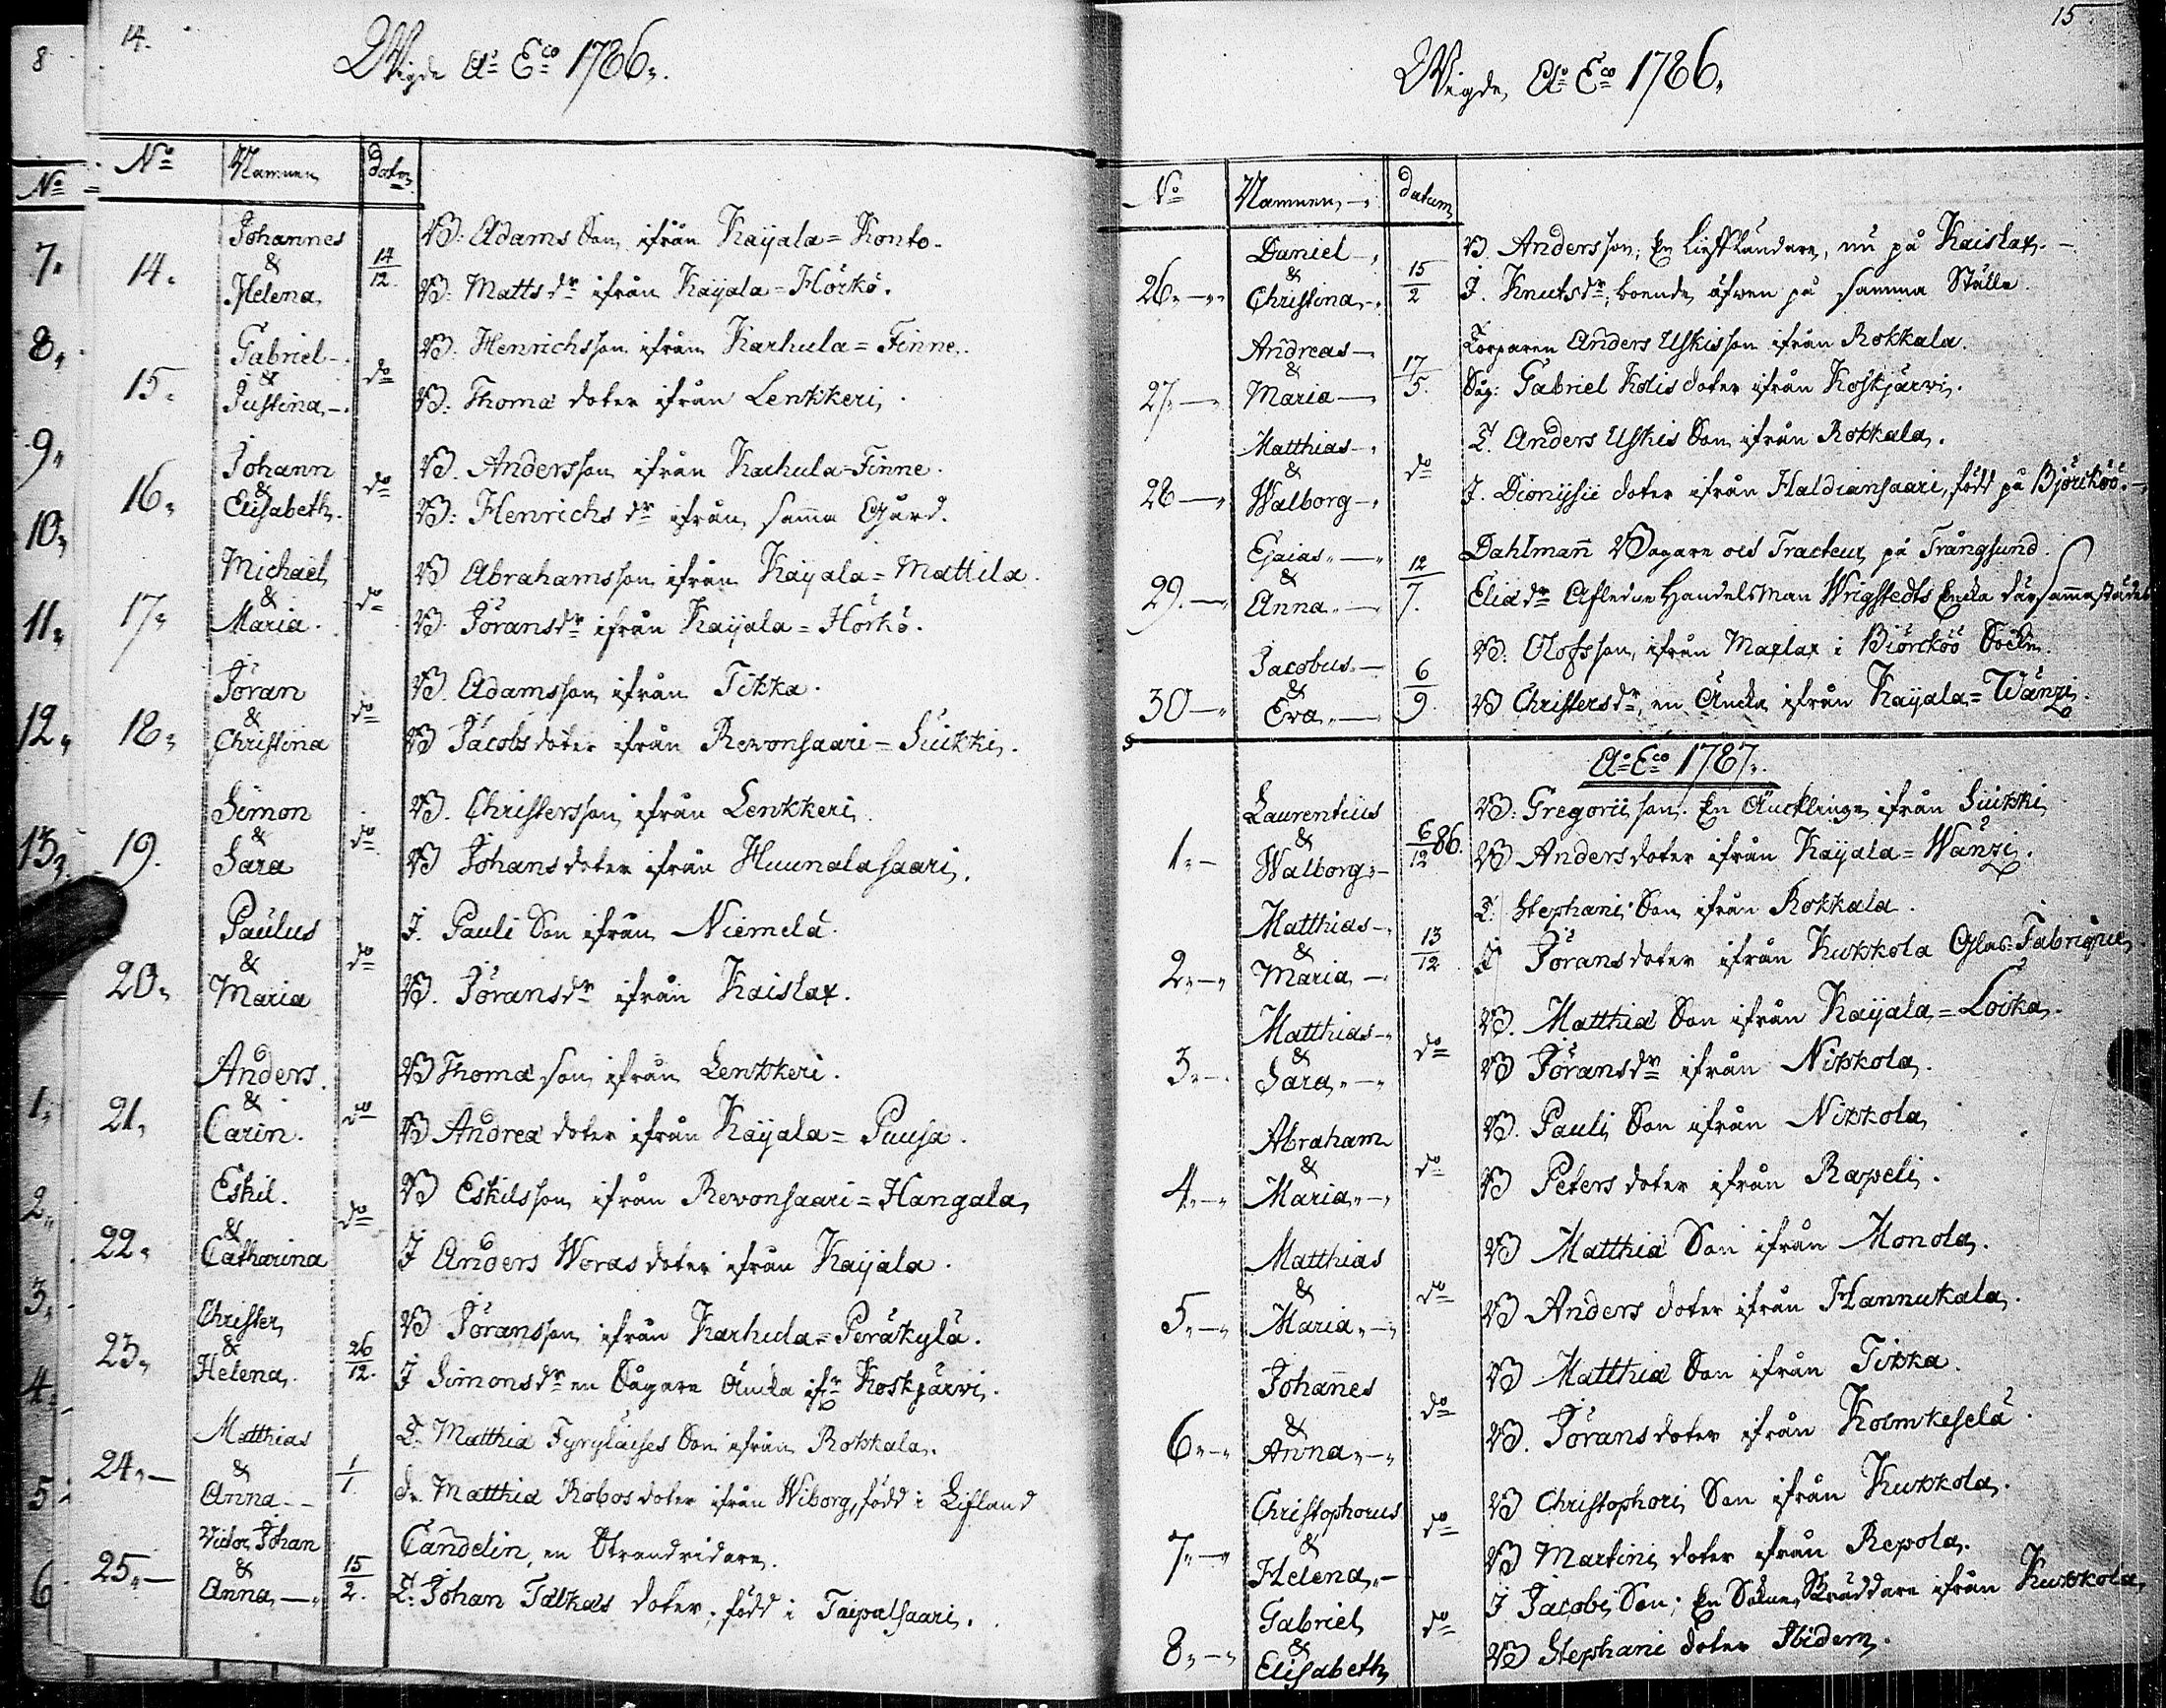 8
No
7.
8.
9.
10.
11.
12.
13.
1.
2.
3.
4.
5
6
14.
Wigde Ao Eco 1786.
No Namnen dato.
14. Johannes & Helena 14/12.
B. Adams Son ifrån Kayala=Konto.
B. Matts dr ifrån Kayala=Hörkö.
15. Gabriel & Justina do
B. Henrichsson ifrån Karhula=Finne.
B. Thomæ doter ifrån Lenkkeri.
16. Johann & Elisabeth. do
B. Andersson ifrån Karhula-Finne.
B. Henrichs dr ifrån samma Gård.
17. Michael & Maria. do
B Abrahamsson ifrån Kayala=Mattila.
B Jöransdr ifrån Kayala=Hörkö.
18. Jöran & Christina do
B Adamsson ifrån Tikka.
B Jacobsdoter ifrån Revonsaari=Suikki.
19. Simon & Sara do
B. Christersson ifrån Lenkkeri.
B Johansdoter ifrån Huunalasaari.
20. Paulus & Maria do
I. Pauli Son ifrån Niemelä.
B. Jöransdr ifrån Kaislax.
21. Anders. & Carin. do
B Thomæ son ifrån Lenkkeri.
B Andreæ doter ifrån Kayala=Puusa.
22. Eskil. & Catharina do
B Eskilsson ifrån Revonsaari=Hangala,
I Anders Weras doter ifrån Kayala.
23. Christer & Helena. 26/12.
B Jöransson ifrån Karhula=Peräkylä.
I Simonsdr en Sågare Äncka ifr Koskjärvi.
24. Matthias & Anna 1/1.
T. Matthiæ Fyryläises Son ifrån Rokkala.
d. Matthiæ Robos doter ifrån Wiborg, född i Lifland
25. Victor Johan & Anna 15/2.
Candelin, en Strandridare.
T. Johan Talkas doter, född i Taipalsaari.
15
Wigde, Ao Eco 1786.
No Namnen, datum,
26. Daniel & Christina 15/2
B. Andersson; En Liefländare, nu på Kaislax.
I. Knutsdr, boende äfven på samma Ställe.
27. Andreas & Maria 17/5.
Torparen Anders Uskisson ifrån Rokkala.
Såg: Gabriel Kolis doter ifrån Koskjärvi.
28 Matthias & Walborg do
T. Anders Uskis Son ifrån Rokkala.
I. Dionysii doter ifrån Haldiansaari, född på Björcköö.
29. Esaias & Anna 12/7.
Dahlman Bagare och Tracteur på Trångsund.
Eliædr Afledne Handelsman Wrigstedts Encka därsammastädes
30 Jacobus & Eva 6/9.
B. Olofsson, ifrån Maxlax i Biörcköö Sockn.
B Christersdr, en Äncka ifrån Kayala=Wänzi.
Ao Eco 1787.
1. Laurentius & Walborg 6/12 86.
B. Gregorii son. En Äncklinge ifrån Suikki
B Andersdoter ifrån Kayala=Wänzi.
2. Matthias & Maria 13/12
T. Stephani Son ifrån Rokkala.
T Jöransdoter ifrån Kukkola Glas-Fabrique
3. Matthias & Sara do
B. Matthiæ Son ifrån Kayala=Loika.
B Jöransdr ifrån Nikkola.
4. Abraham & Maria do
B. Pauli Son ifrån Nikkola
B Peters doter ifrån Rapeli.
5. Matthias & Maria do
B Matthiæ Son ifrån Monola.
B Anders doter ifrån Hannukala.
6. Johannes & Anna do
B Matthiæ Son ifrån Tikka.
B. Jörans doter ifrån Kolmikeselä.
7. Christophorus & Helena do
B Christophori Son ifrån Kukkola.
B Martini doter ifrån Repola.
8. Gabriel & Elisabeth do
I Jacobi Son; En Sockne Skräddare ifrån Kukkola,
B Stephani doter Ibidem.